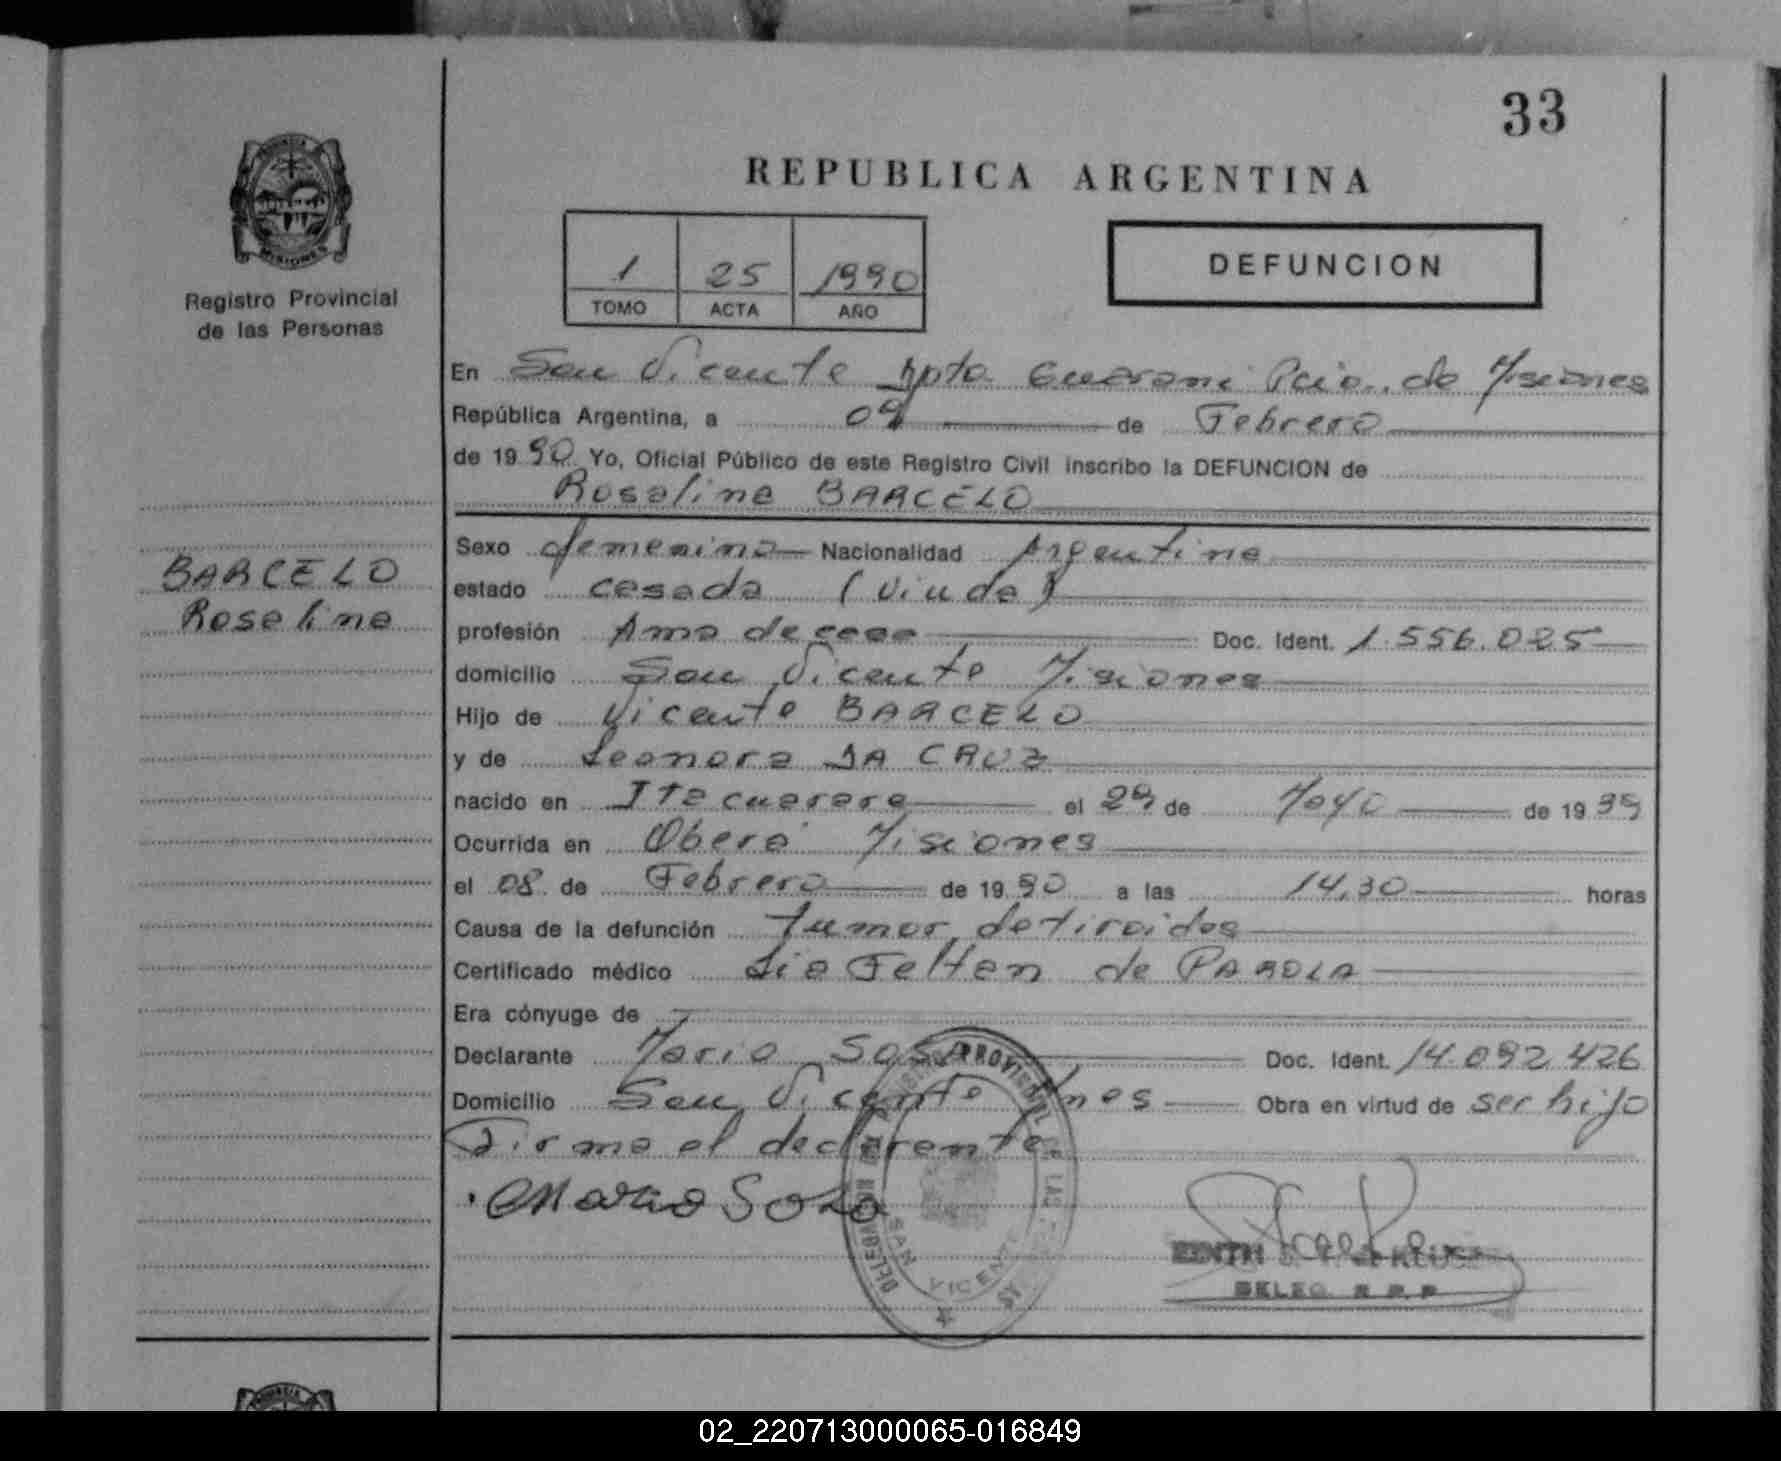 33
REPUBLICA ARGENTINA
MISIONES
Registro Provincial
de las Personas
1 25 1990
TOMO ACTA AÑO
DEFUNCION
En San Vicente Dpto Guarani Pcia. de Misiones
República Argentina, a 09 de Febrero
de 1990 Yo, Oficial Público de este Registro Civil inscribo la DEFUNCION de
Rosalina BARCELO
BARCELO
Rosalina
Sexo femenino Nacionalidad Argentina
estado casada (viuda)
profesión Ama de casa Doc. Ident. 1.556.025
domicilio San Vicente Misiones
Hijo de Vicente BARCELO
y de Leonora DA CRUZ
nacido en Itacuarare el 29 de Mayo de 1939
Ocurrida en Oberá Misiones
el 08 de Febrero de 1990 a las 14,30 horas
Causa de la defunción tumor de tiroides
Certificado médico Lia Felten de PAROLA
Era cónyuge de
Declarante Mario SOSA Doc. Ident. 14.092.426
Domicilio San Vicente Mnes Obra en virtud de ser hijo
Firma el declarante
Mario Sosa
PROVINCIAL DE LAS
SAN VICENTE
DELEG. R.P.P.
02_220713000065-016849